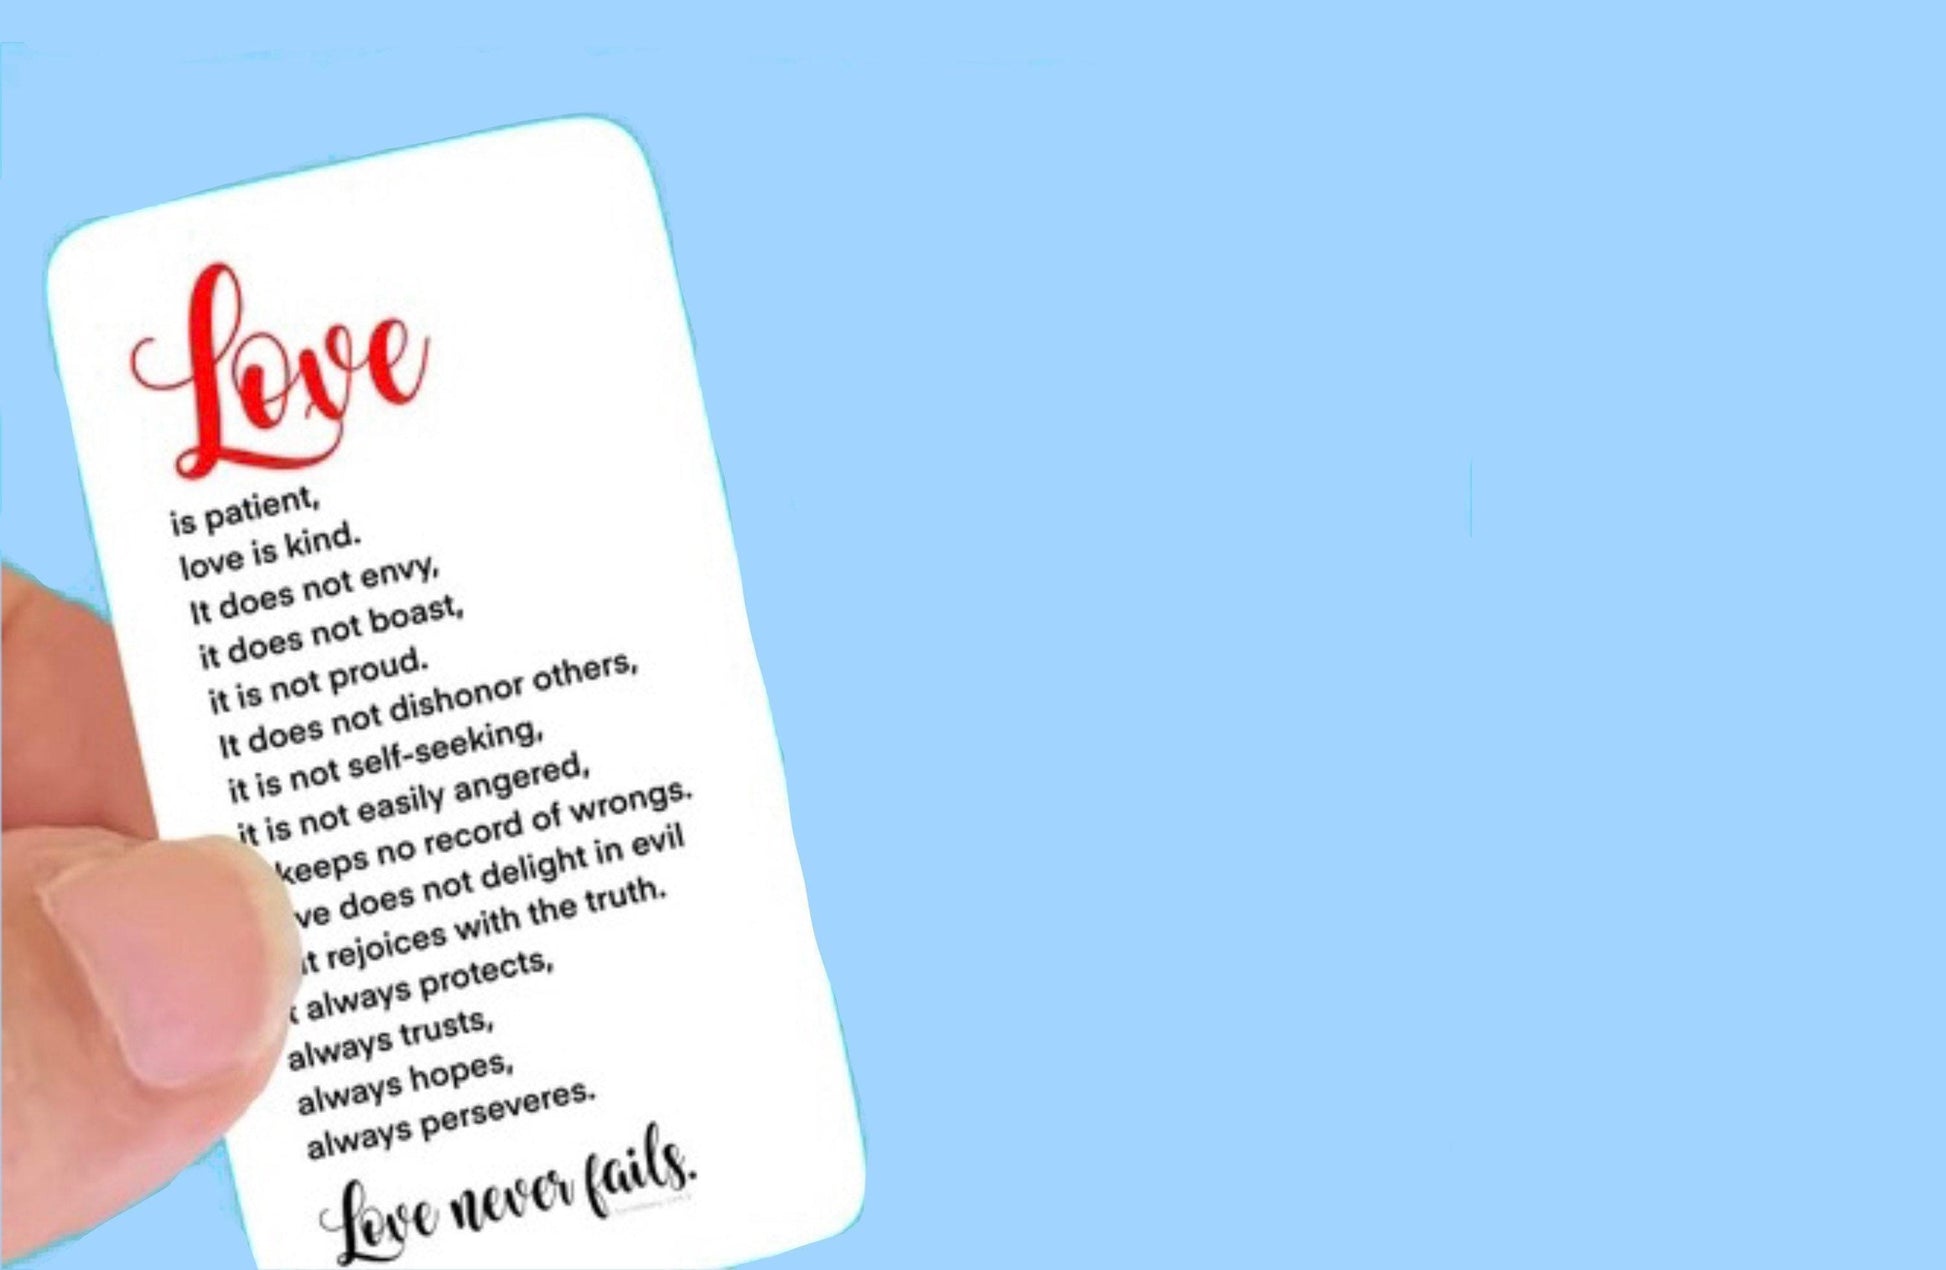 Love
is patient,
love is kind.
It does not envy,
it does not boast,
it is not proud.
It does not dishonor others,
it is not self-seeking,
it is not easily angered,
keeps no record of wrongs.
ve does not delight in evil
t rejoices with the truth.
always protects,
always trusts,
always hopes,
always perseveres.
Love never fails.